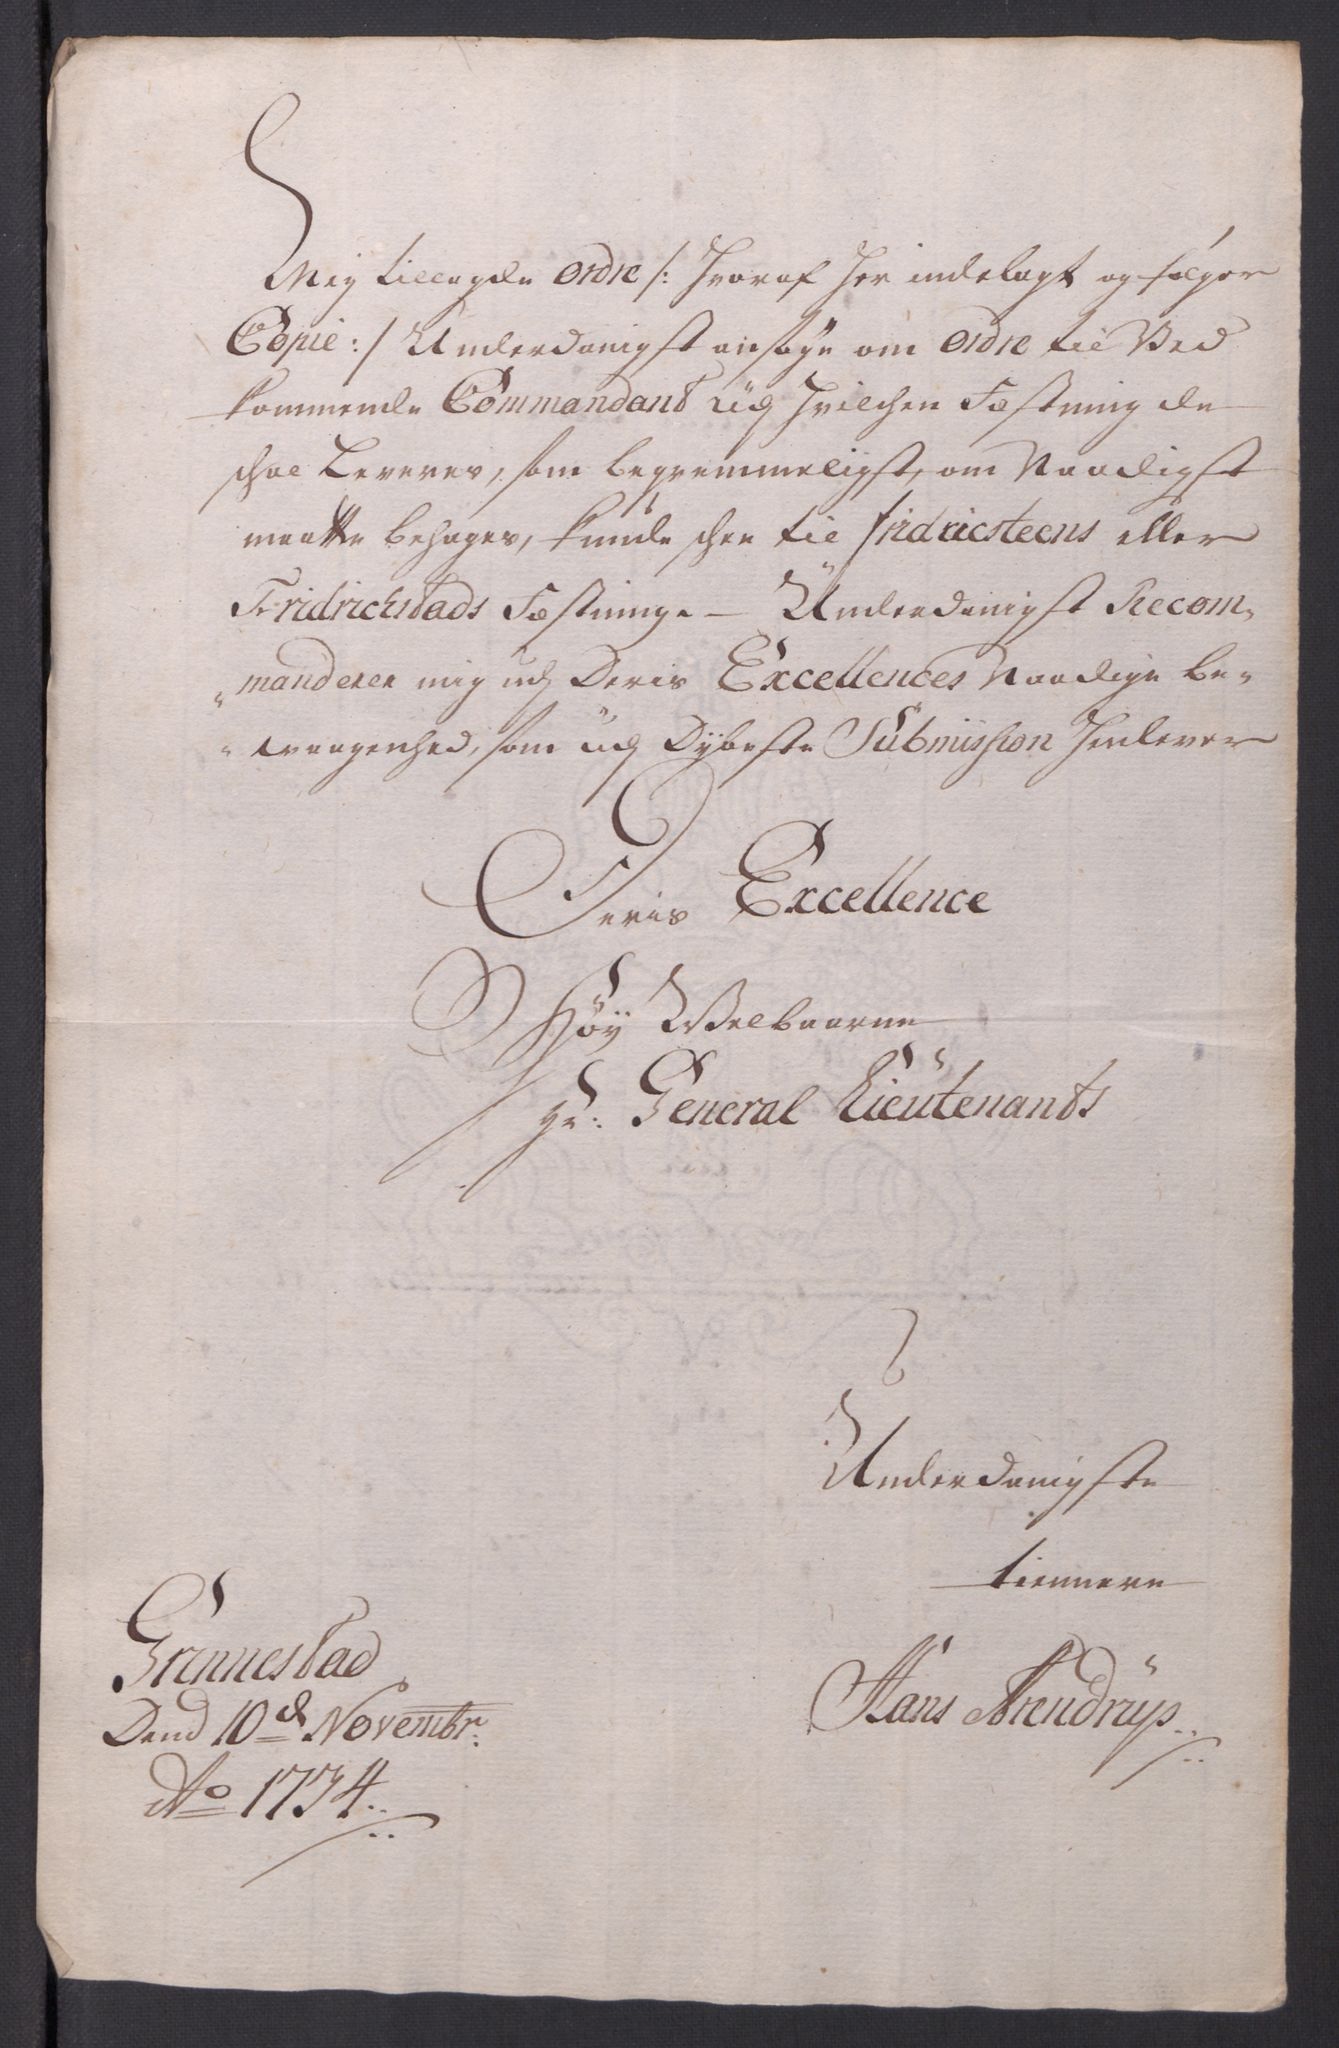 Mig tillagde Ordre /: hvoraf her indelagt og følger
Copie :/ Underdanigst ansøge om Ordre til Ved
kommende Commandant udj hvilchen Fæstning de
schal Leveres, som beqvemmeligst, om Naadigst
maatte behages, kunde schee til fridricsteens eller
Fridrichstads Fæstninge – Underdanigst Recom„
„manderer mig udj Deris Excellences Naadige be„
„vaagenhed, som udj Dybeste Submission henlever
Deris Excellence
Høy Welbaarne
Hr: General Lieutenants
Underdanigste
tiennere
Grimestad
Dend 10de Novembr:
Ao 1734.
Hans Arendrup